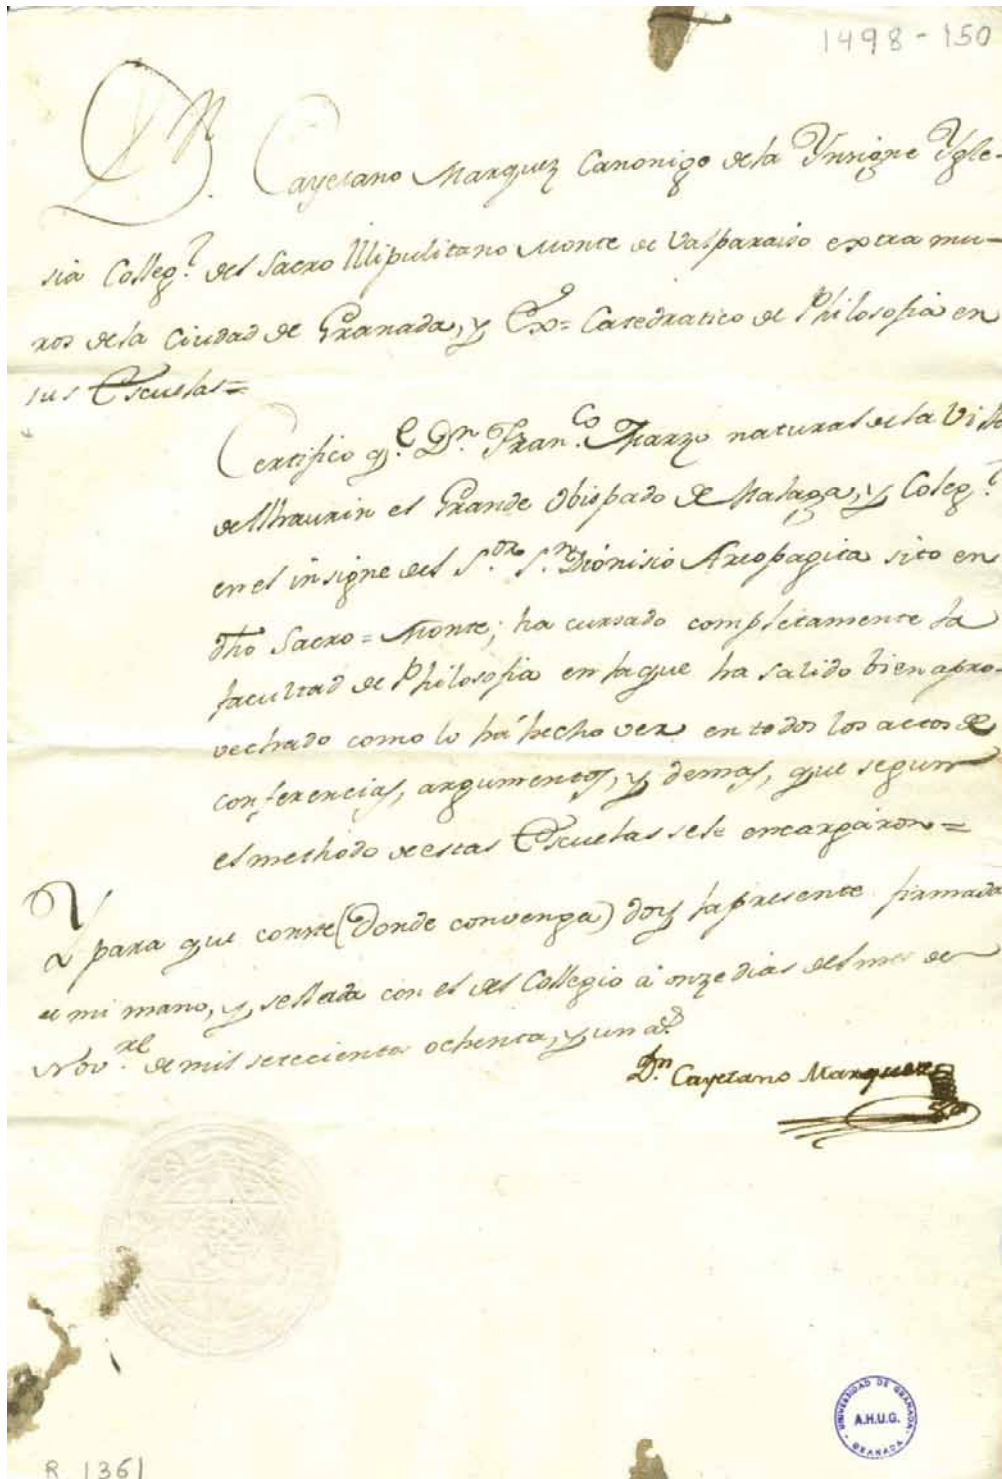 1498-150
Dn. Cayetano Marquez Canonigo de la Ynsigne Ygle-
sia Colleg.l del Sacro Illipulitano Monte de Valparaiso extra mu-
ros de la Ciudad de Granada, y Ex= Catedratico de Philosofia en
sus Escuelas=
Certifico q.e Dn. Fran.co Marzo natural de la Villa
de Alhaurin el Grande Obispado de Malaga, y Coleg.l
en el insigne del S.or S.n Dionisio Areopagita sito en
dho Sacro=Monte; ha cursado completamente la
facultad de Philosofia en la que ha salido bien apro-
vechado como lo há hecho ver en todos los actos de
conferencias, argumentos, y demas, que segun
el methodo de estas Escuelas se le encargáron=
Y para que conste (donde convenga) doy la presente firmada
de mi mano, y sellada con el del Collegio á onze dias del mes de
Nov.re de mil setecientos ochenta, y un a.s
Dn. Cayetano Marquez
UNIVERSIDAD DE GRANADA
A.H.U.G.
GRANADA
R 1361